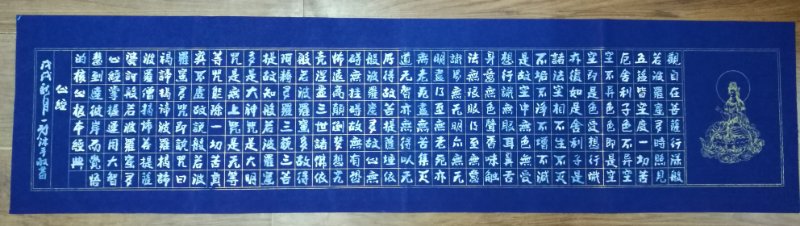 觀自在菩薩行深般
若波羅蜜多時照見
五蘊皆空度一切苦
厄舍利子色不異空
空不異色色即是空
空即是色受想行識
亦復如是舍利子是
諸法空相不生不滅
不垢不淨不增不減
是故空中無色無受
想行識無眼耳鼻舌
身意無色聲香味觸
法無眼界乃至無意
識界无無明亦无无
明盡乃至無老死亦
無老死盡無苦集滅
道无智亦無得以无
所得故菩提薩埵依
般若波羅蜜多故心無
罣礙無罣礙故無有恐
怖遠離顛倒夢想究
竟涅槃三世諸佛依
般若波羅蜜多故得
阿耨多羅三藐三菩
提故知般若波羅蜜
多是大神咒是大明
咒是無上咒是无等
等咒能除一切苦真
實不虛故說般若波
羅蜜多咒即說咒曰
揭諦揭諦波羅揭諦
波羅僧揭諦菩提薩
婆訶般若波羅蜜多
心經掌握運用大智
慧到達彼岸而覺悟
的核心根本經典
心經
戊戌秋月一敬書